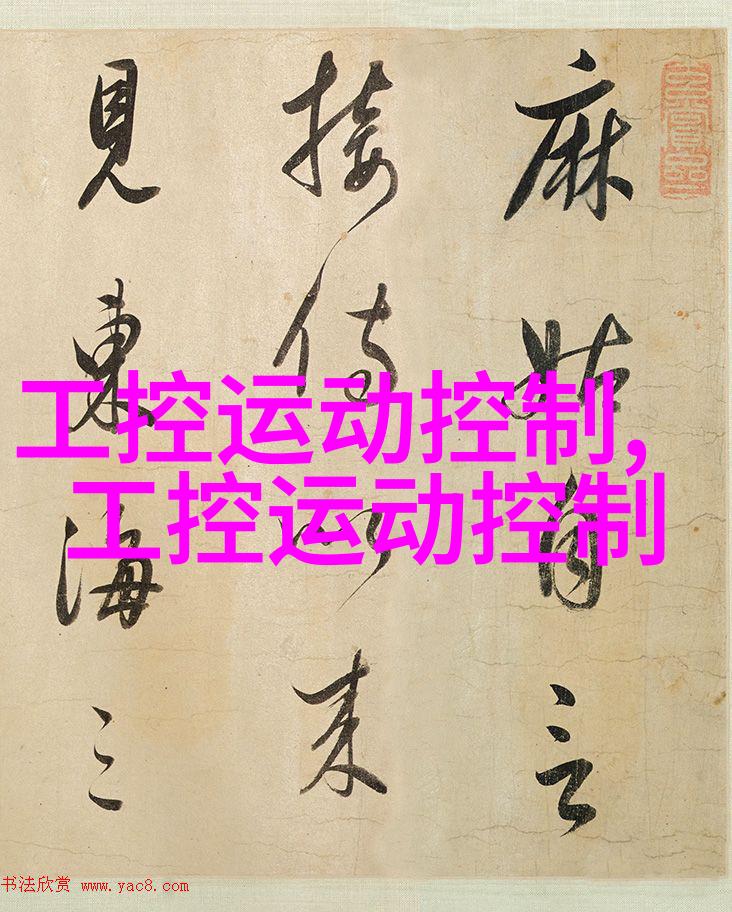 麻姑自言
接侍以来
見東海三
工控运动控制,
工控运动控制
书法欣赏 www.yac8.com